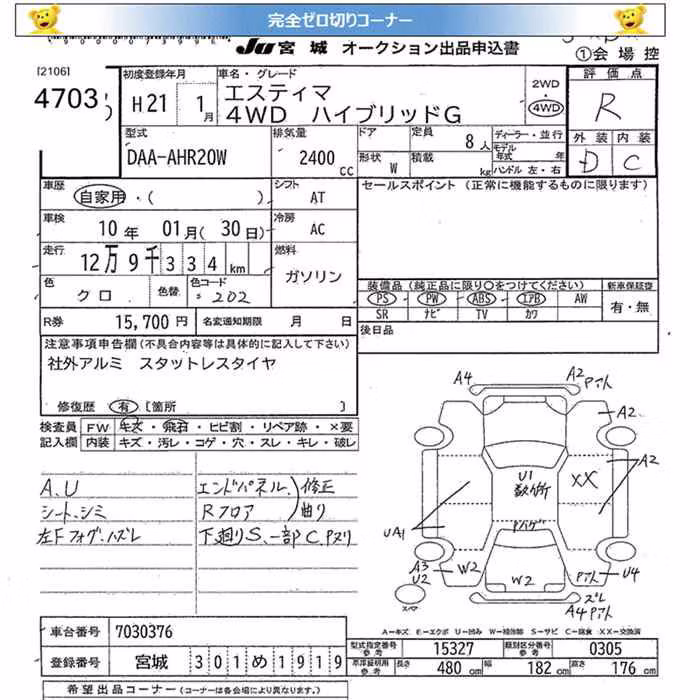 完全ゼロ切りコーナー
JU 宮城 オークション出品申込書
①会場控
[2106]
4703
初度登録年月
H21 1月
車名・グレード
エスティマ
4WD ハイブリッドG
2WD
・
4WD
評価点
R
外装 内装
D C
型式
DAA-AHR20W
排気量
2400 cc
ドア
定員
8人
形状 W
積載 kg
ディーラー・並行
モデル年式 年
ハンドル 左・右
車歴
自家用・( )
シフト
AT
セールスポイント (正常に機能するものに限ります)
車検
10年 01月(30日)
冷房
AC
走行
12万9千334km
燃料
ガソリン
色
クロ
色替
色コード
202
装備品(純正品に限り○をつけてください)
PS PW ABS エアB AW
SR ナビ TV カワ
新車保証書
有・無
R券 15,700円
名変通知期限 月 日
後日品
注意事項申告欄(不具合内容等は具体的に記入して下さい)
社外アルミ スタットレスタイヤ
修復歴 有 [箇所 ]
検査員記入欄
FW キズ・飛石・ヒビ割・リペア跡・×要
内装 キズ・汚レ・コゲ・穴・スレ・キレ・破レ
A.U
シート、シミ
左Fフォグ、ハズレ
エンドパネル 修正
Rフロア 曲り
下廻りS、一部C、Pヌリ
A4
A2
A2
A2
U1
XX
UA1
Pハゲ
A3
U2
W2
W2
U4
ズレ
A4
スマ
A=キズ E=エクボ U=凹み W=補修跡 S=サビ C=腐食 XX=交換済
車台番号 7030376
登録番号 宮城 301め1919
型式指定番号 参考 15327
類別区分番号 参考 0305
長さ 480cm 幅 182cm 高さ 176cm
希望出品コーナー(コーナーは各会場により異なります。)